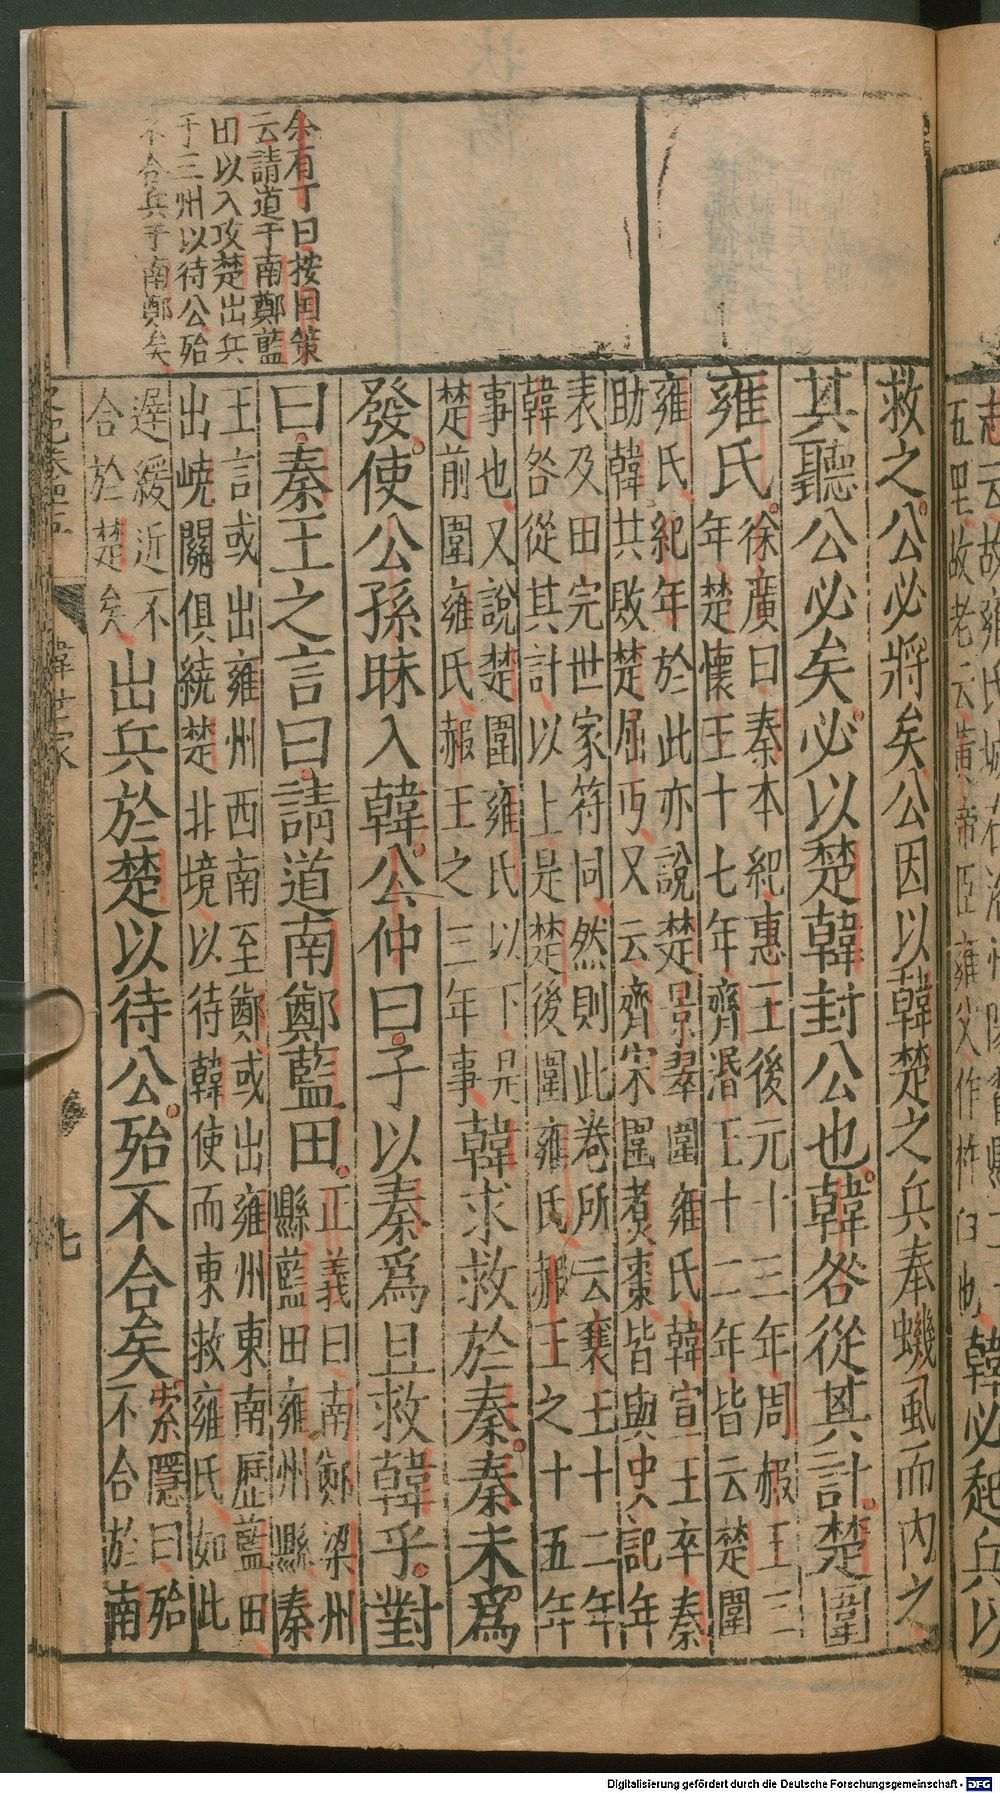 志云故雍氏城在洛州陽翟縣
五里故老云黃帝臣雍父作杵臼也韓必起兵以
救之公必將矣公因以韓楚之兵奉蟣虱而內之
其聽公必矣必以楚韓封公也韓咎從其計楚圍
雍氏徐廣曰秦本紀惠王後元十三年周赧王三
年楚懷王十七年齊湣王十二年皆云楚圍
雍氏紀年於此亦說楚景翠圍雍氏韓宣王卒秦
助韓共敗楚屈丏又云齊宋圍煑棗皆與史記年
表及田完世家符同然則此卷所云襄王十二年
韓咎從其計以上是楚後圍雍氏赧王之十五年
事也又說楚圍雍氏以下是
楚前圍雍氏赧王之三年事韓求救於秦秦未爲
發使公孫昧入韓公仲曰子以秦爲且救韓乎對
曰秦王之言曰請道南鄭藍田正義曰南鄭梁州
縣藍田雍州縣秦
王言或出雍州西南至鄭或出雍州東南歷藍田
出嶢關俱繞楚北境以待韓使而東救雍氏如此
遲緩近不
合於楚矣出兵於楚以待公殆不合矣索隱曰殆
不合於南
余有丁曰按国策
云請道于南鄭藍
田以入攻楚出兵
于三州以待公殆
不合兵于南鄭矣
韓世家
七
Digitalisierung gefördert durch die Deutsche Forschungsgemeinschaft - DFG